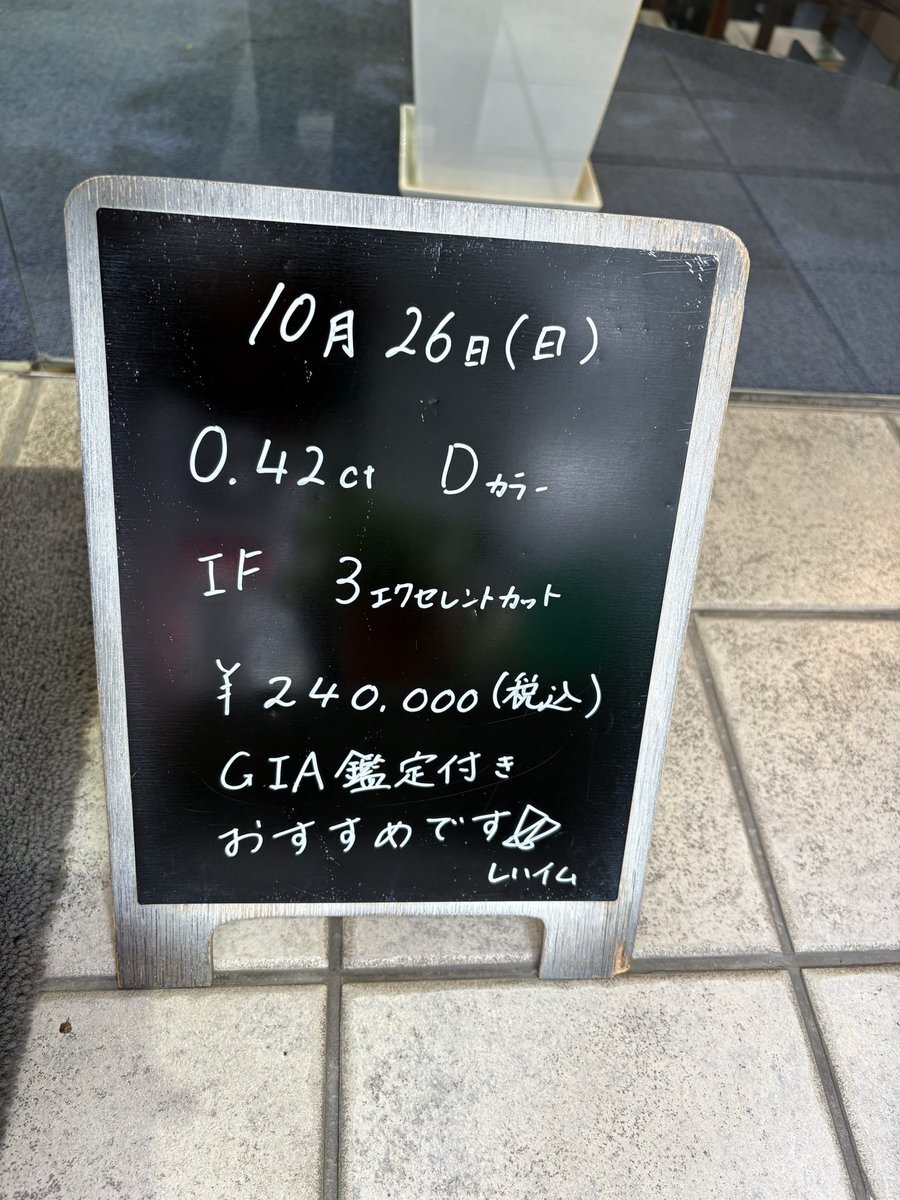 10月 26日(日)
0.42ct Dカラー
IF 3エクセレントカット
¥240.000(税込)
GIA鑑定付き
おすすめです
レハイム